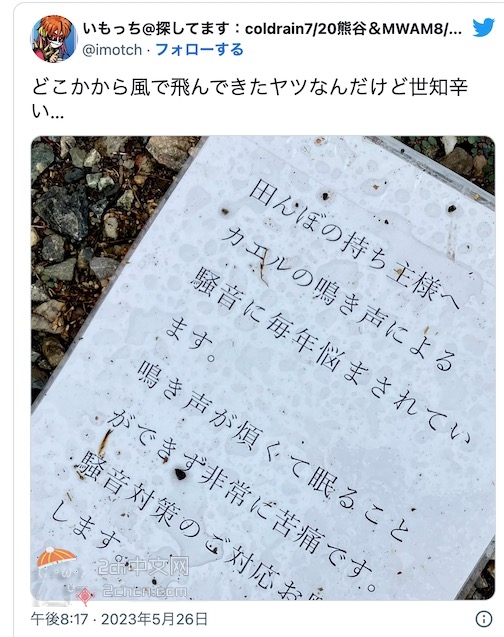 いもっち@探してます：coldrain7/20熊谷＆MWAM8/...
@imotch · フォローする
どこかから風で飛んできたヤツなんだけど世知辛
い...
田んぼの持ち主様へ
カエルの鳴き声による
騒音に毎年悩まされてい
ます。
鳴き声が煩くて眠ること
ができず非常に苦痛です。
騒音対策のご対応お
します。
2ch中文网
2chcn.com
午後8:17 · 2023年5月26日